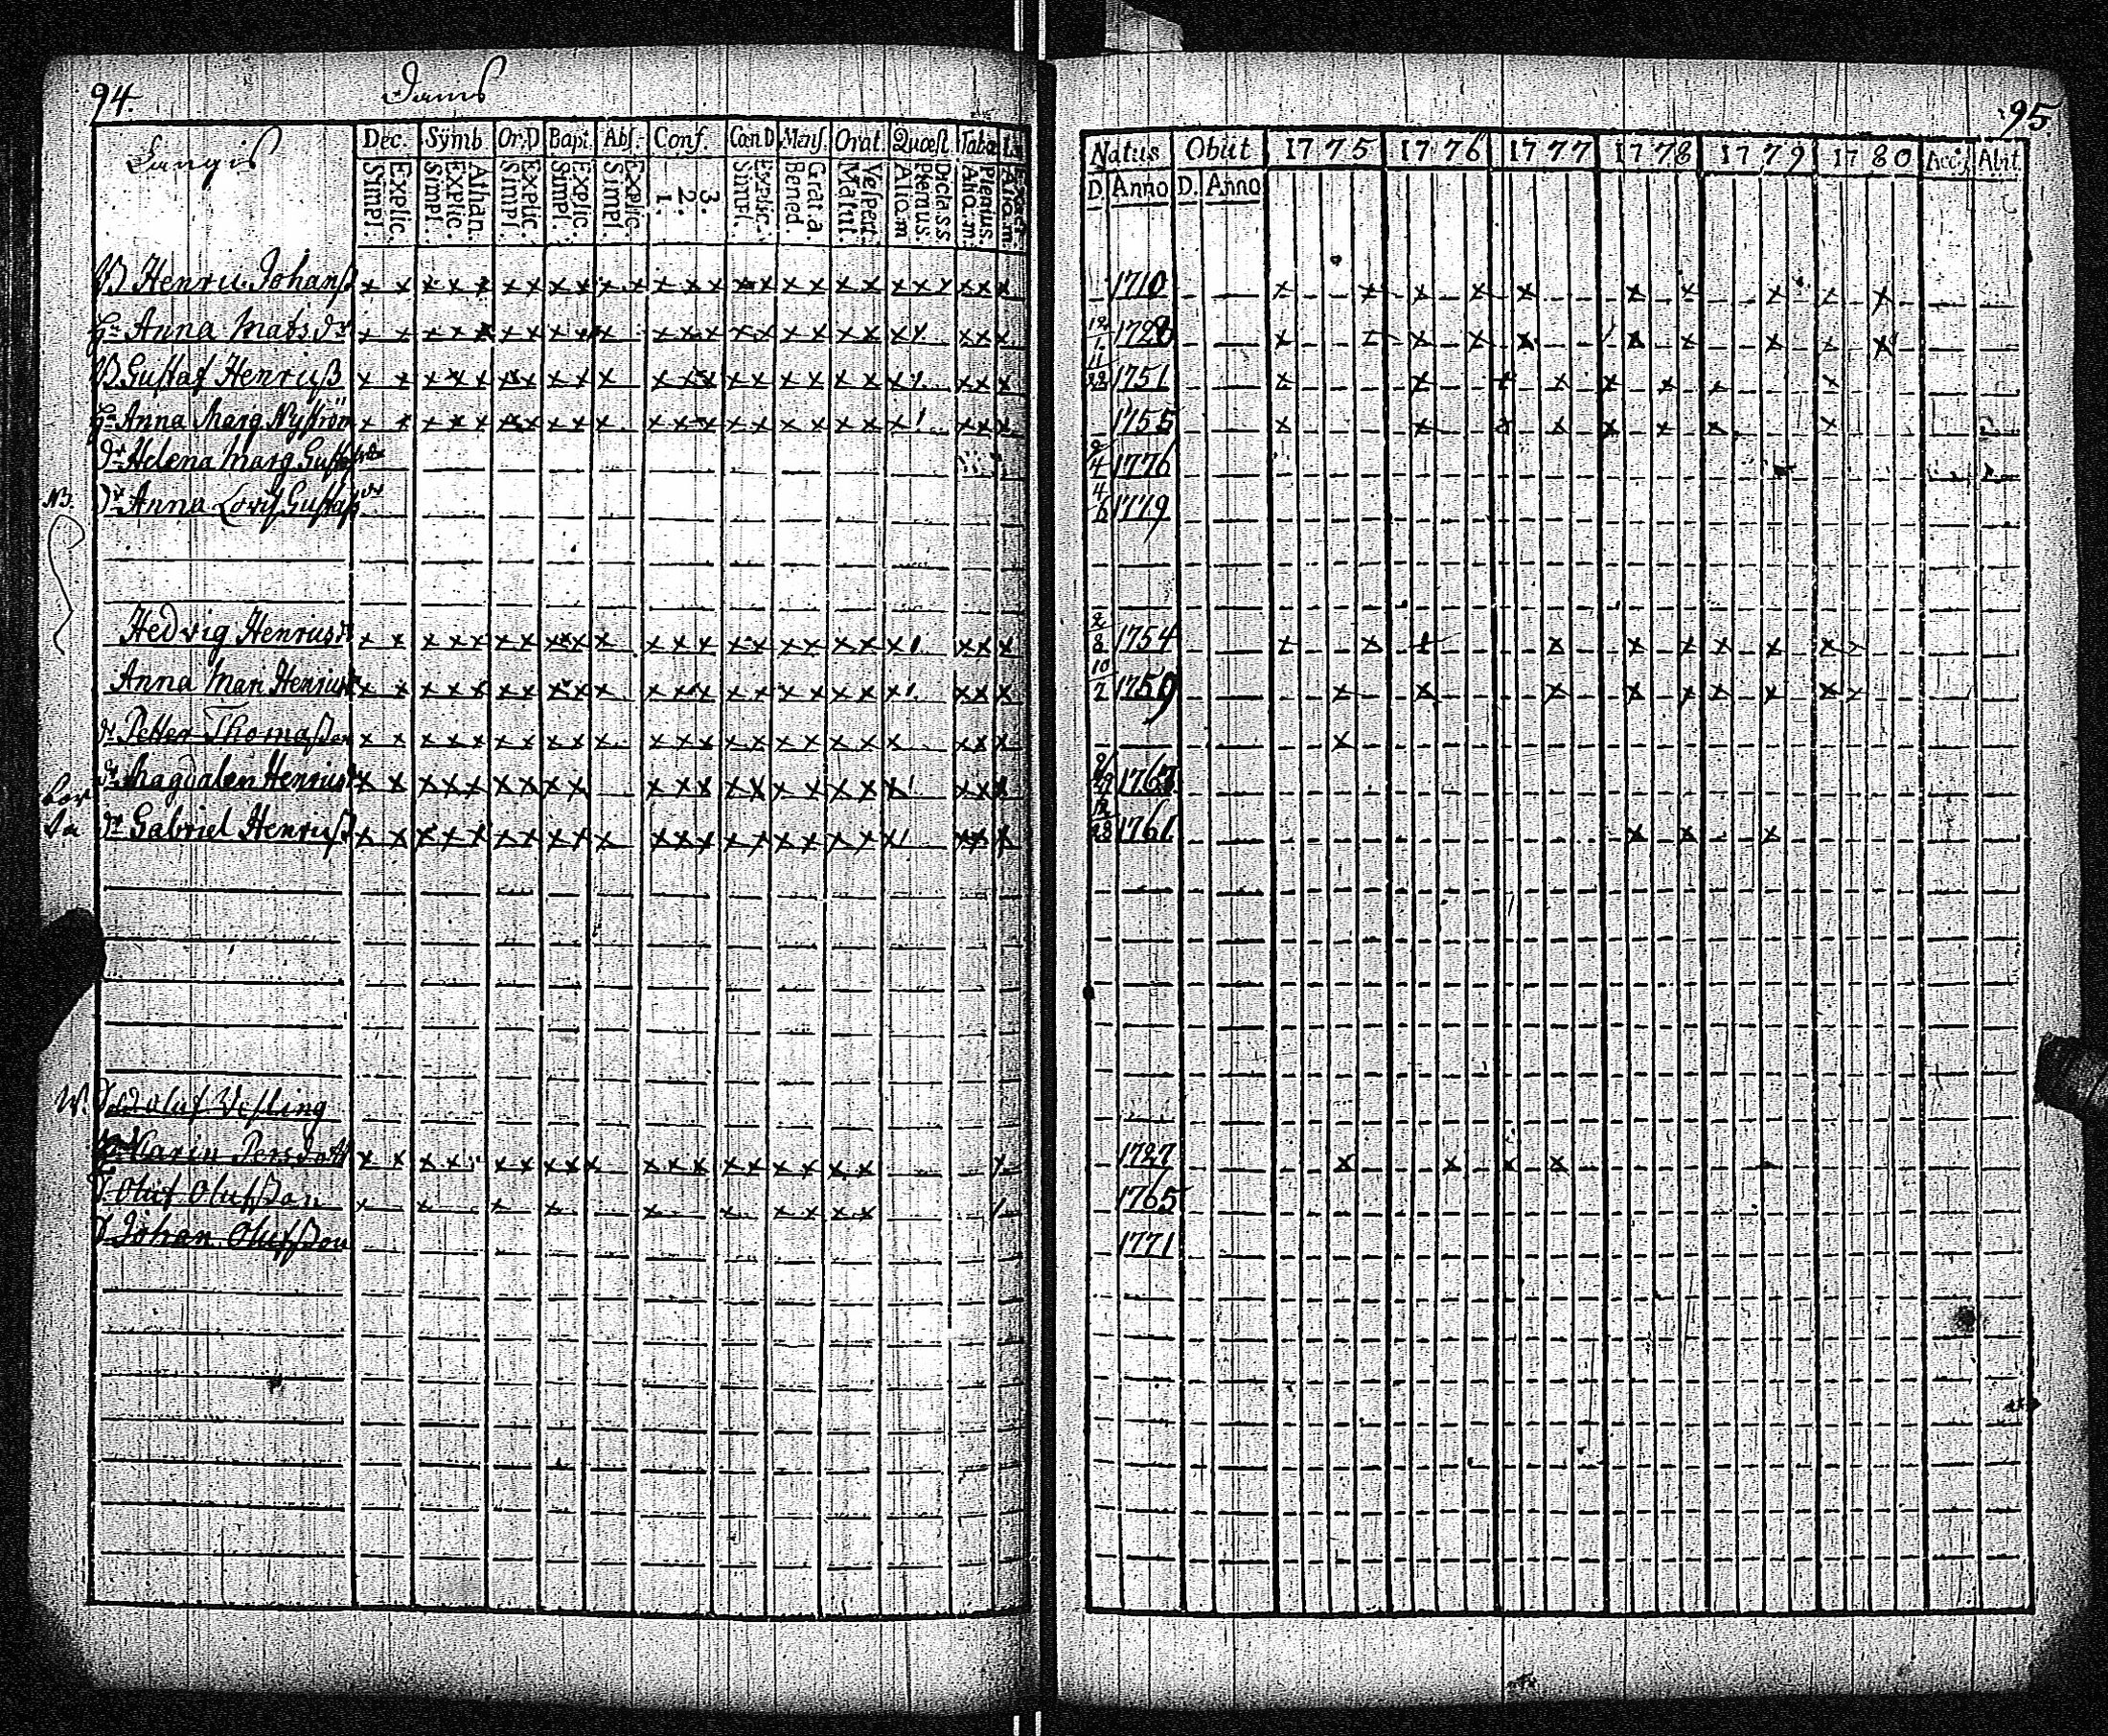 94.
Langis
Dec. Symb Or.D Bapt. Abs. Conf. Cœn.D Mens. Orat. Quœst. Taba
Simpl. Explic. Simpl. Explic. Athan. Simpl. Explic. Simpl. Explic. Simpl. Explic. 1. 2. 3. Simpl. Explic. Bened. Grat.a. Matut. Vespert. Alio.m Plenius. Dicta ss Alio.m. Plenius.
B Henric Johanß x x x x x x x x x x x x x x x x x x x x x x x x x x
Hu Anna Mats dr x x x x x x x x x x x x x x x x x x x x x x x x
B Gustaf Henricß x x x x x x x x x x x x x x x x x x x x x x x x
Hu Anna Marg Nyström x x x x x x x x x x x x x x x x x x x x x x x x
dr Helena Marg Gustafsdr
NB. Dr Anna Lovis Gustafsdr
Hedvig Henricsdr x x x x x x x x x x x x x x x x x x x x x x x x
Anna Mari Henricsdr x x x x x x x x x x x x x x x x x x x x x x x x
dr Petter Thomasson x x x x x x x x x x x x x x x x x x x x x x x x
dr Magdalen Henricsdr x x x x x x x x x x x x x x x x x x x x x x x
dr Gabriel Henricß x x x x x x x x x x x x x x x x x x x x x x x x
W. Sold Oluf Vesling
Karin Persdott x x x x x x x x x x x x x x x x x x x x
S. Oluf Olufsson x x x x x x x x x x
S Johan Olufsson
95
Natus Obiit 1775 1776 1777 1778 1779 1780 Acc: Abit
D. Anno D. Anno
1710 x x x x x x x x x x
12/1 1728 x x x x x x x x x x
11/22 1751 x x x x x x x x
1755 x x x x x x x x
2/4 1776
4/6 1779
2/8 1754 x x x x x x x x x x
10/7 1759 x x x x x x x x x
x
1767
12/23 1761 x x x
1727 x x x x x
1765
1771